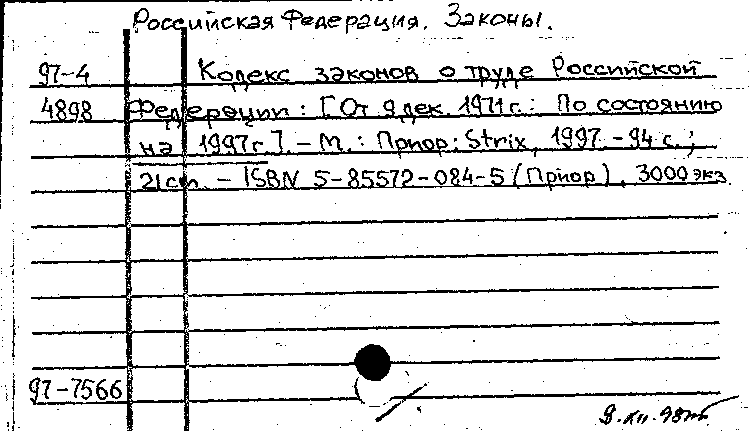 Российская Федерация. Законы.
97-4 Кодекс законов о труде Российской
4898 Федерации: [От 9 дек. 1971 г.: По состоянию
на 1997 г.]. - М.: Приор: Strix, 1997. - 94 с.;
21 cm. - ISBN 5-85572-084-5 (Приор), 3000 экз
97-7566
9.XII.98